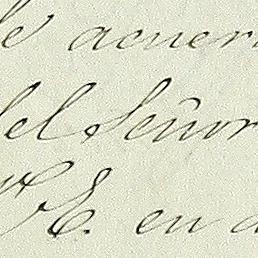 de acuer
del Señor
V. E. en a